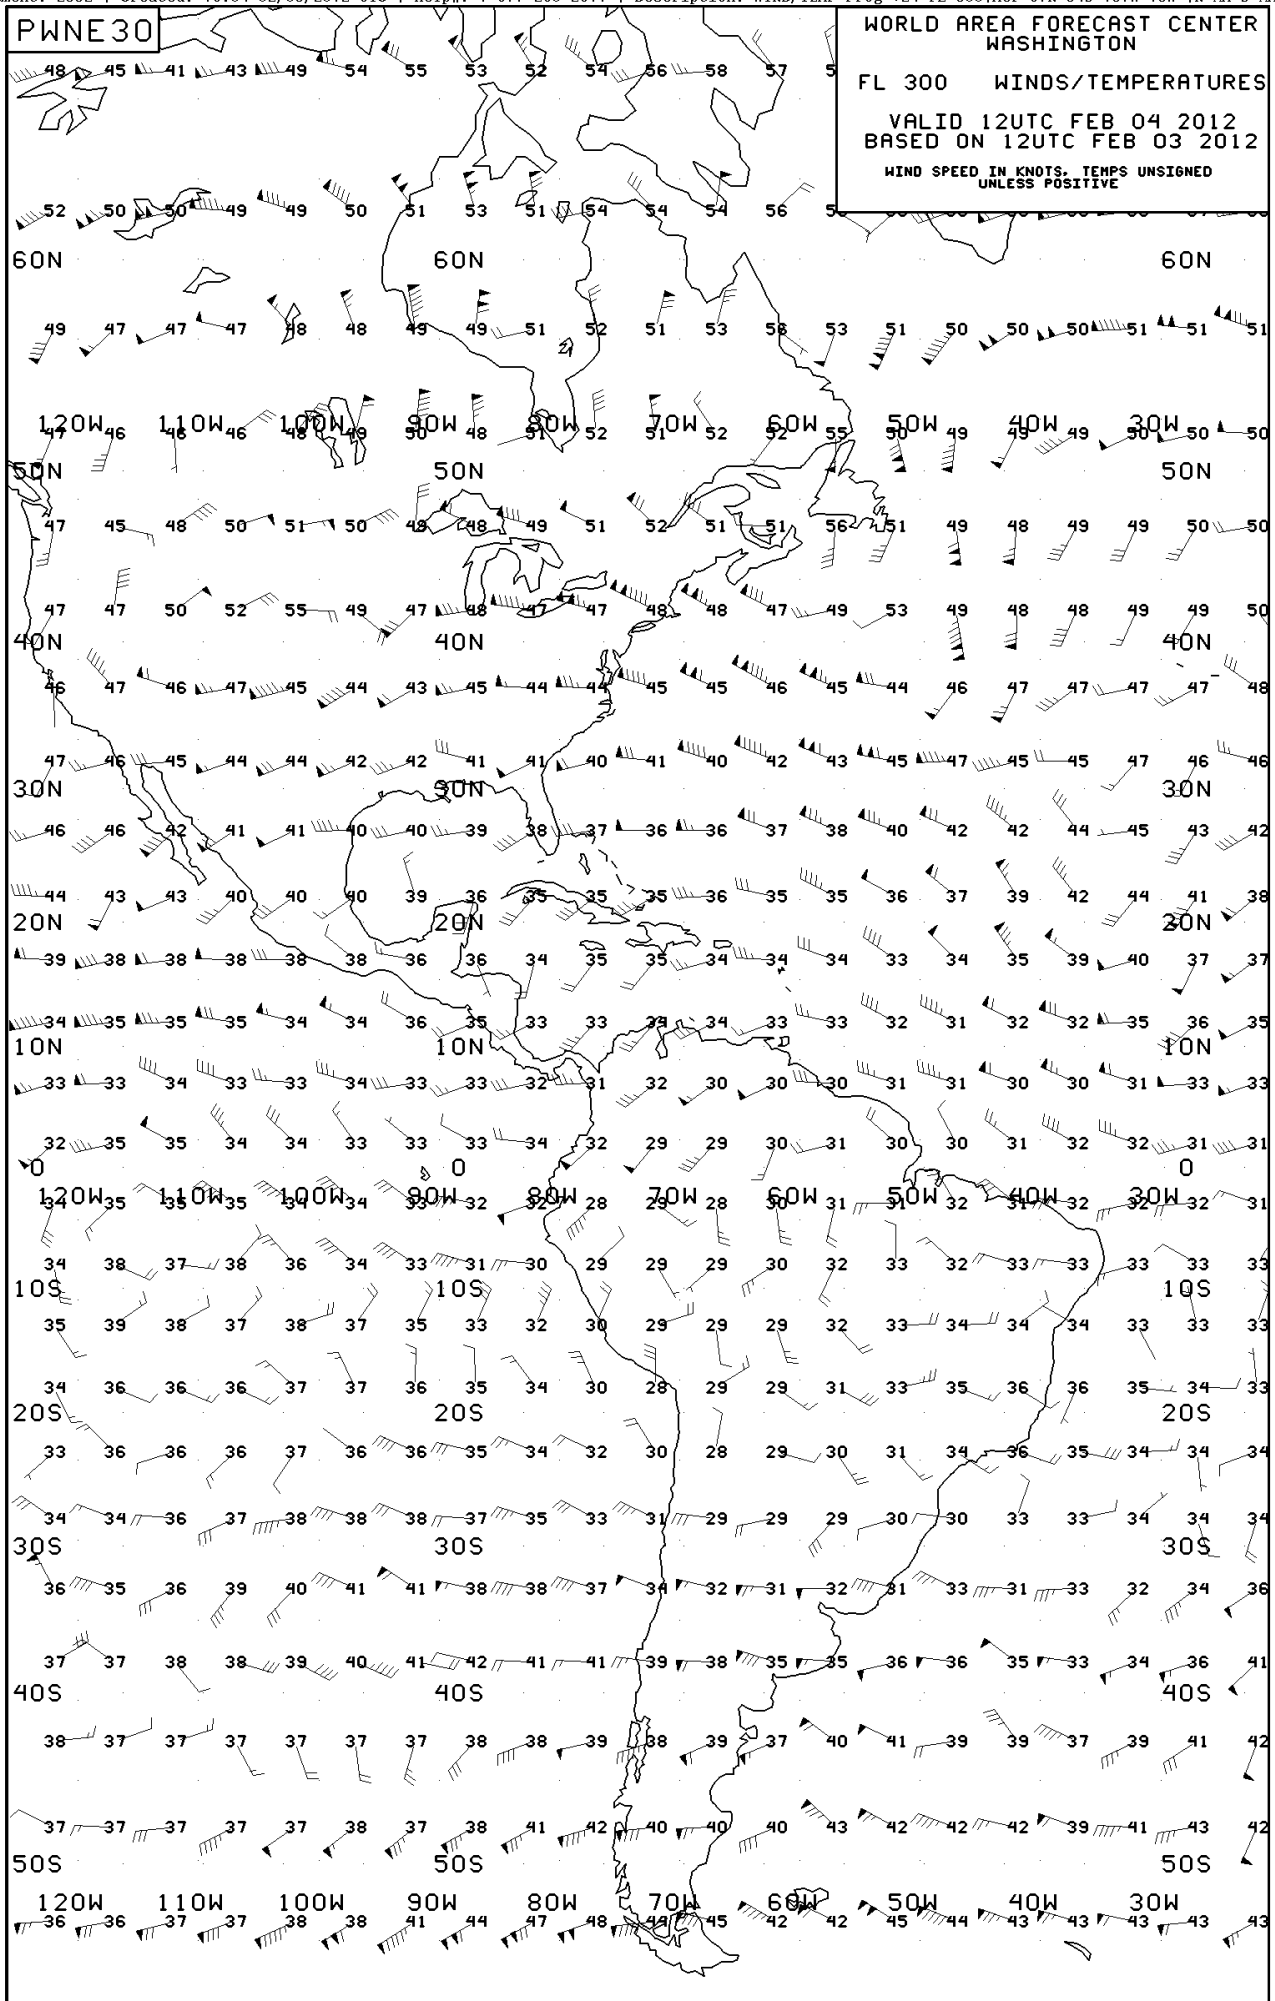 PWNE30
WORLD AREA FORECAST CENTER
WASHINGTON
FL 300 WINDS/TEMPERATURES
VALID 12UTC FEB 04 2012
BASED ON 12UTC FEB 03 2012
WIND SPEED IN KNOTS, TEMPS UNSIGNED
UNLESS POSITIVE
48 45 41 43 49 54 55 53 52 54 56 58 57
52 50 50 49 49 50 51 53 51 54 54 54 56
60N 60N 60N
49 47 47 47 48 48 49 49 51 52 51 53 56 53 51 50 50 50 51 51 51
120W 110W 100W 90W 80W 70W 60W 50W 40W 30W
47 46 46 46 48 49 50 48 51 52 51 52 52 55 50 49 49 49 50 50 50
50N 50N 50N
47 45 48 50 51 50 49 48 49 51 52 51 51 56 51 49 48 49 49 50 50
47 47 50 52 55 49 47 48 47 47 48 48 47 49 53 49 48 48 49 49 50
40N 40N 40N
46 47 46 47 45 44 43 45 44 44 45 45 46 45 44 46 47 47 47 47 48
47 46 45 44 44 42 42 41 41 40 41 40 42 43 45 47 45 45 47 46 46
30N 30N 30N
46 46 42 41 41 40 40 39 38 37 36 36 37 38 40 42 42 44 45 43 42
44 43 43 40 40 40 39 36 35 35 35 36 35 35 36 37 39 42 44 41 38
20N 20N 20N
39 38 38 38 38 38 36 36 34 35 35 34 34 34 33 34 35 39 40 37 37
34 35 35 35 34 34 36 35 33 33 34 34 33 33 32 31 32 32 35 36 35
10N 10N 10N
33 33 34 33 33 34 33 33 32 31 32 30 30 30 31 31 30 30 31 33 33
32 35 35 34 34 33 33 33 34 32 29 29 30 31 30 30 31 32 32 31 31
0 0 0
120W 110W 100W 90W 80W 70W 60W 50W 40W 30W
34 35 35 35 34 34 33 32 32 28 29 28 30 31 31 32 31 32 32 32 31
34 38 37 38 36 34 33 31 30 29 29 29 30 32 33 32 33 33 33 33 33
10S 10S 10S
35 39 38 37 38 37 35 33 32 30 29 29 29 32 33 34 34 34 33 33 33
34 36 36 36 37 37 36 35 34 30 28 29 29 31 33 35 36 36 35 34 33
20S 20S 20S
33 36 36 36 37 36 36 35 34 32 30 28 29 30 31 34 36 35 34 34 34
34 34 36 37 38 38 38 37 35 33 31 29 29 29 30 30 33 33 34 34 34
30S 30S 30S
36 35 36 39 40 41 41 38 38 37 34 32 31 32 31 33 31 33 32 34 36
37 37 38 38 39 40 41 42 41 41 39 38 35 35 36 36 35 33 34 36 41
40S 40S 40S
38 37 37 37 37 37 37 38 38 39 38 39 37 40 41 39 39 37 39 41 42
37 37 37 37 37 38 37 38 41 42 40 40 40 43 42 42 42 39 41 43 42
50S 50S 50S
120W 110W 100W 90W 80W 70W 60W 50W 40W 30W
36 36 37 37 38 38 41 44 47 48 49 45 42 42 45 44 43 43 43 43 43